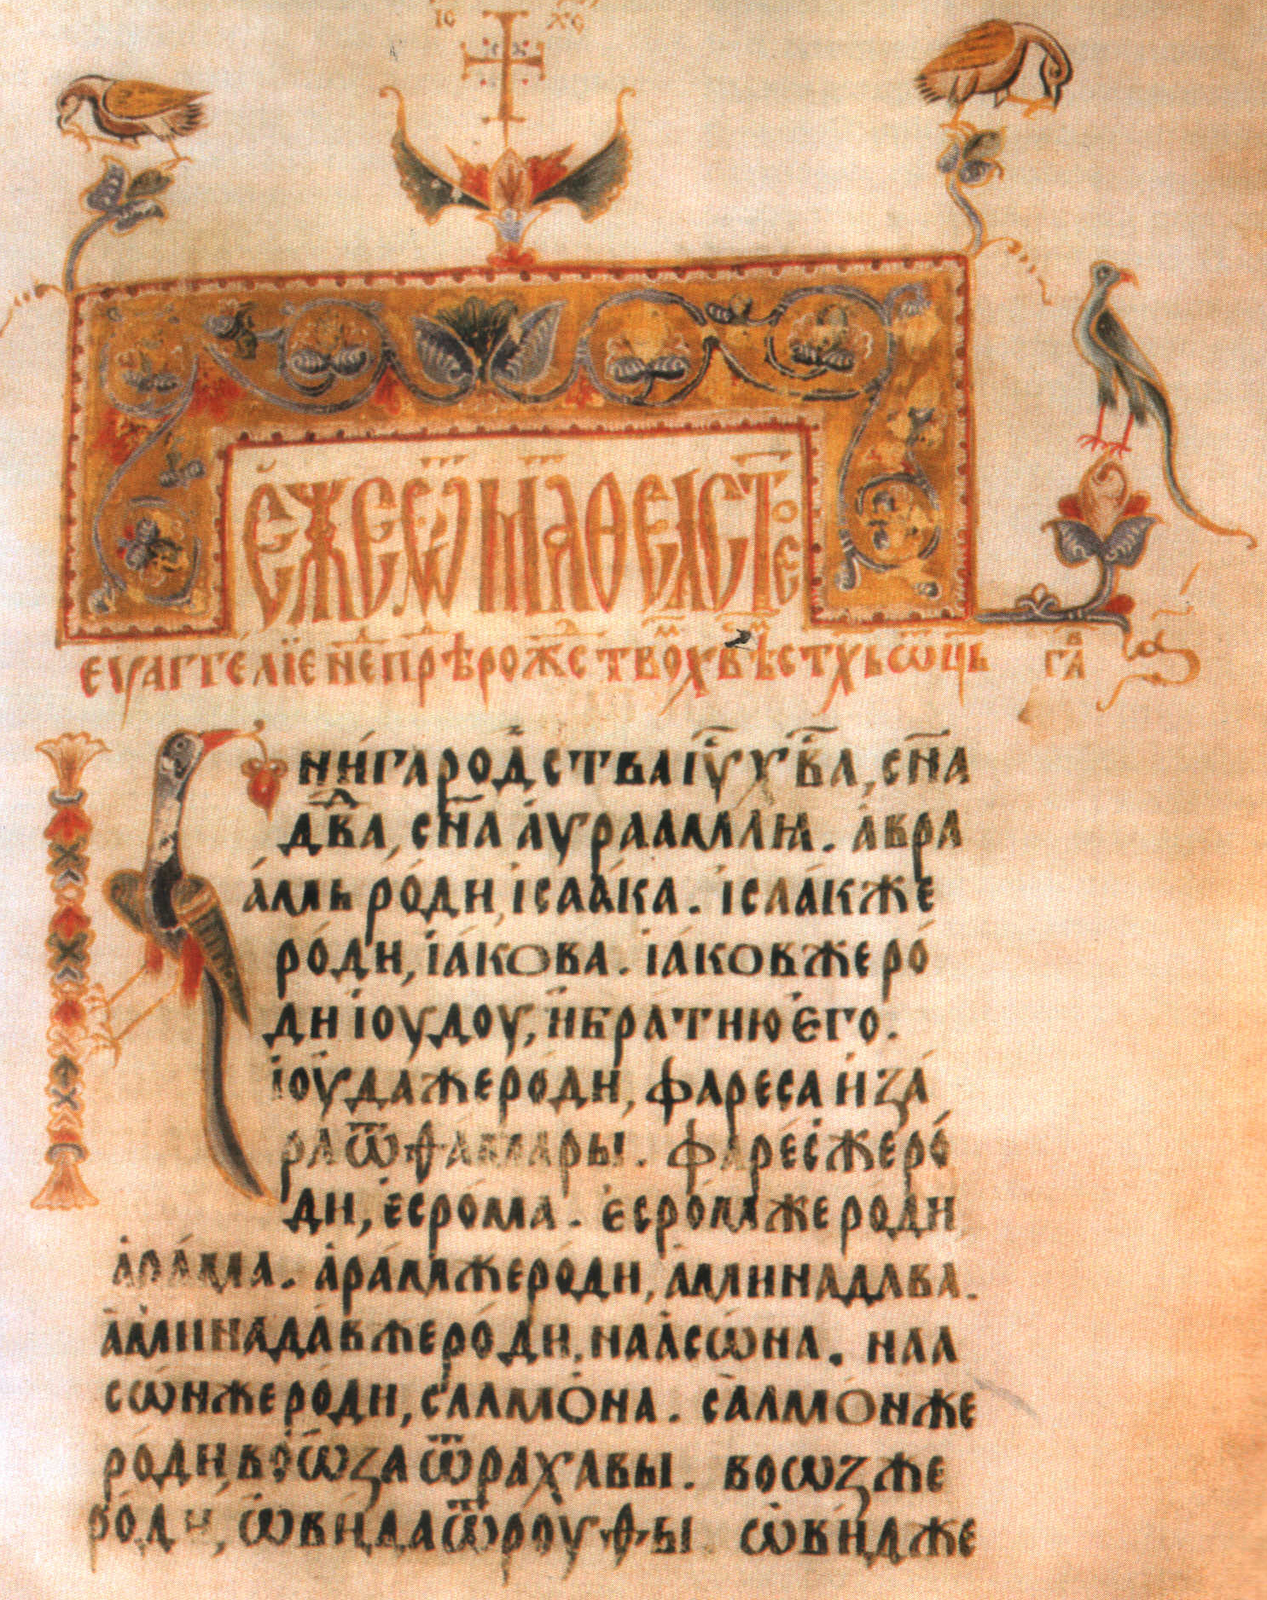 І҃С Х҃С
Е́ЖЕ Ѿ МАѲЕА СТ҃ОЕ
ЕѴАГГЕ́ЛІЕ НЕⷣ ПРѢⷣ РОЖЕСТВОⷨ ХВ҃ѢⷨСТ҃ХЬ Ѿ҃ЦЬ ГЛ҃А҃ В А҃
НИ́ГА РОДⷭСТВА І҃У Х҃ВА, СН҃А
ДⷣВА, СН҃А А҆УРААМЛѦ. А҆ВРА
А҆МЬ РО́ДИ, І҆САА́КА. І҆САА́К ЖЕ
РО́ДИ, І҆А́КОВА. І҆А́КОВ ЖЕ РО́
ДИ І҆ОУДОУ, И҆ БРА́ТИЮ Е҆ГО.
І҆ОУ́ДА ЖЕ РО́ДИ, ФАРЕСА И҆ ЗА́
РА Ѿ ѲАМАРЫ. ФАРЕ́С ЖЕ РО́
ДИ, Е҆СРО́МА. Е҆СРО́М ЖЕ РО́ДИ
А҆РА́МА. А҆РА́М ЖЕ РО́ДИ, А҆МИНАДАВА.
А҆МИНАДА́В ЖЕ РО́ДИ, НААСѠ́НА. НАА
СѠ́Н ЖЕ РОДИ, САЛМО́НА. СА́ЛМО́Н ЖЕ
РО́ДИ, ВО́ѠЗА Ѿ РАХА́ВЫ. ВОѠЗ ЖЕ
РО́ДИ, Ѡ҆ВИ́ДА Ѿ РОУ́ѲЫ Ѡ҆ВИ́Д ЖЕ